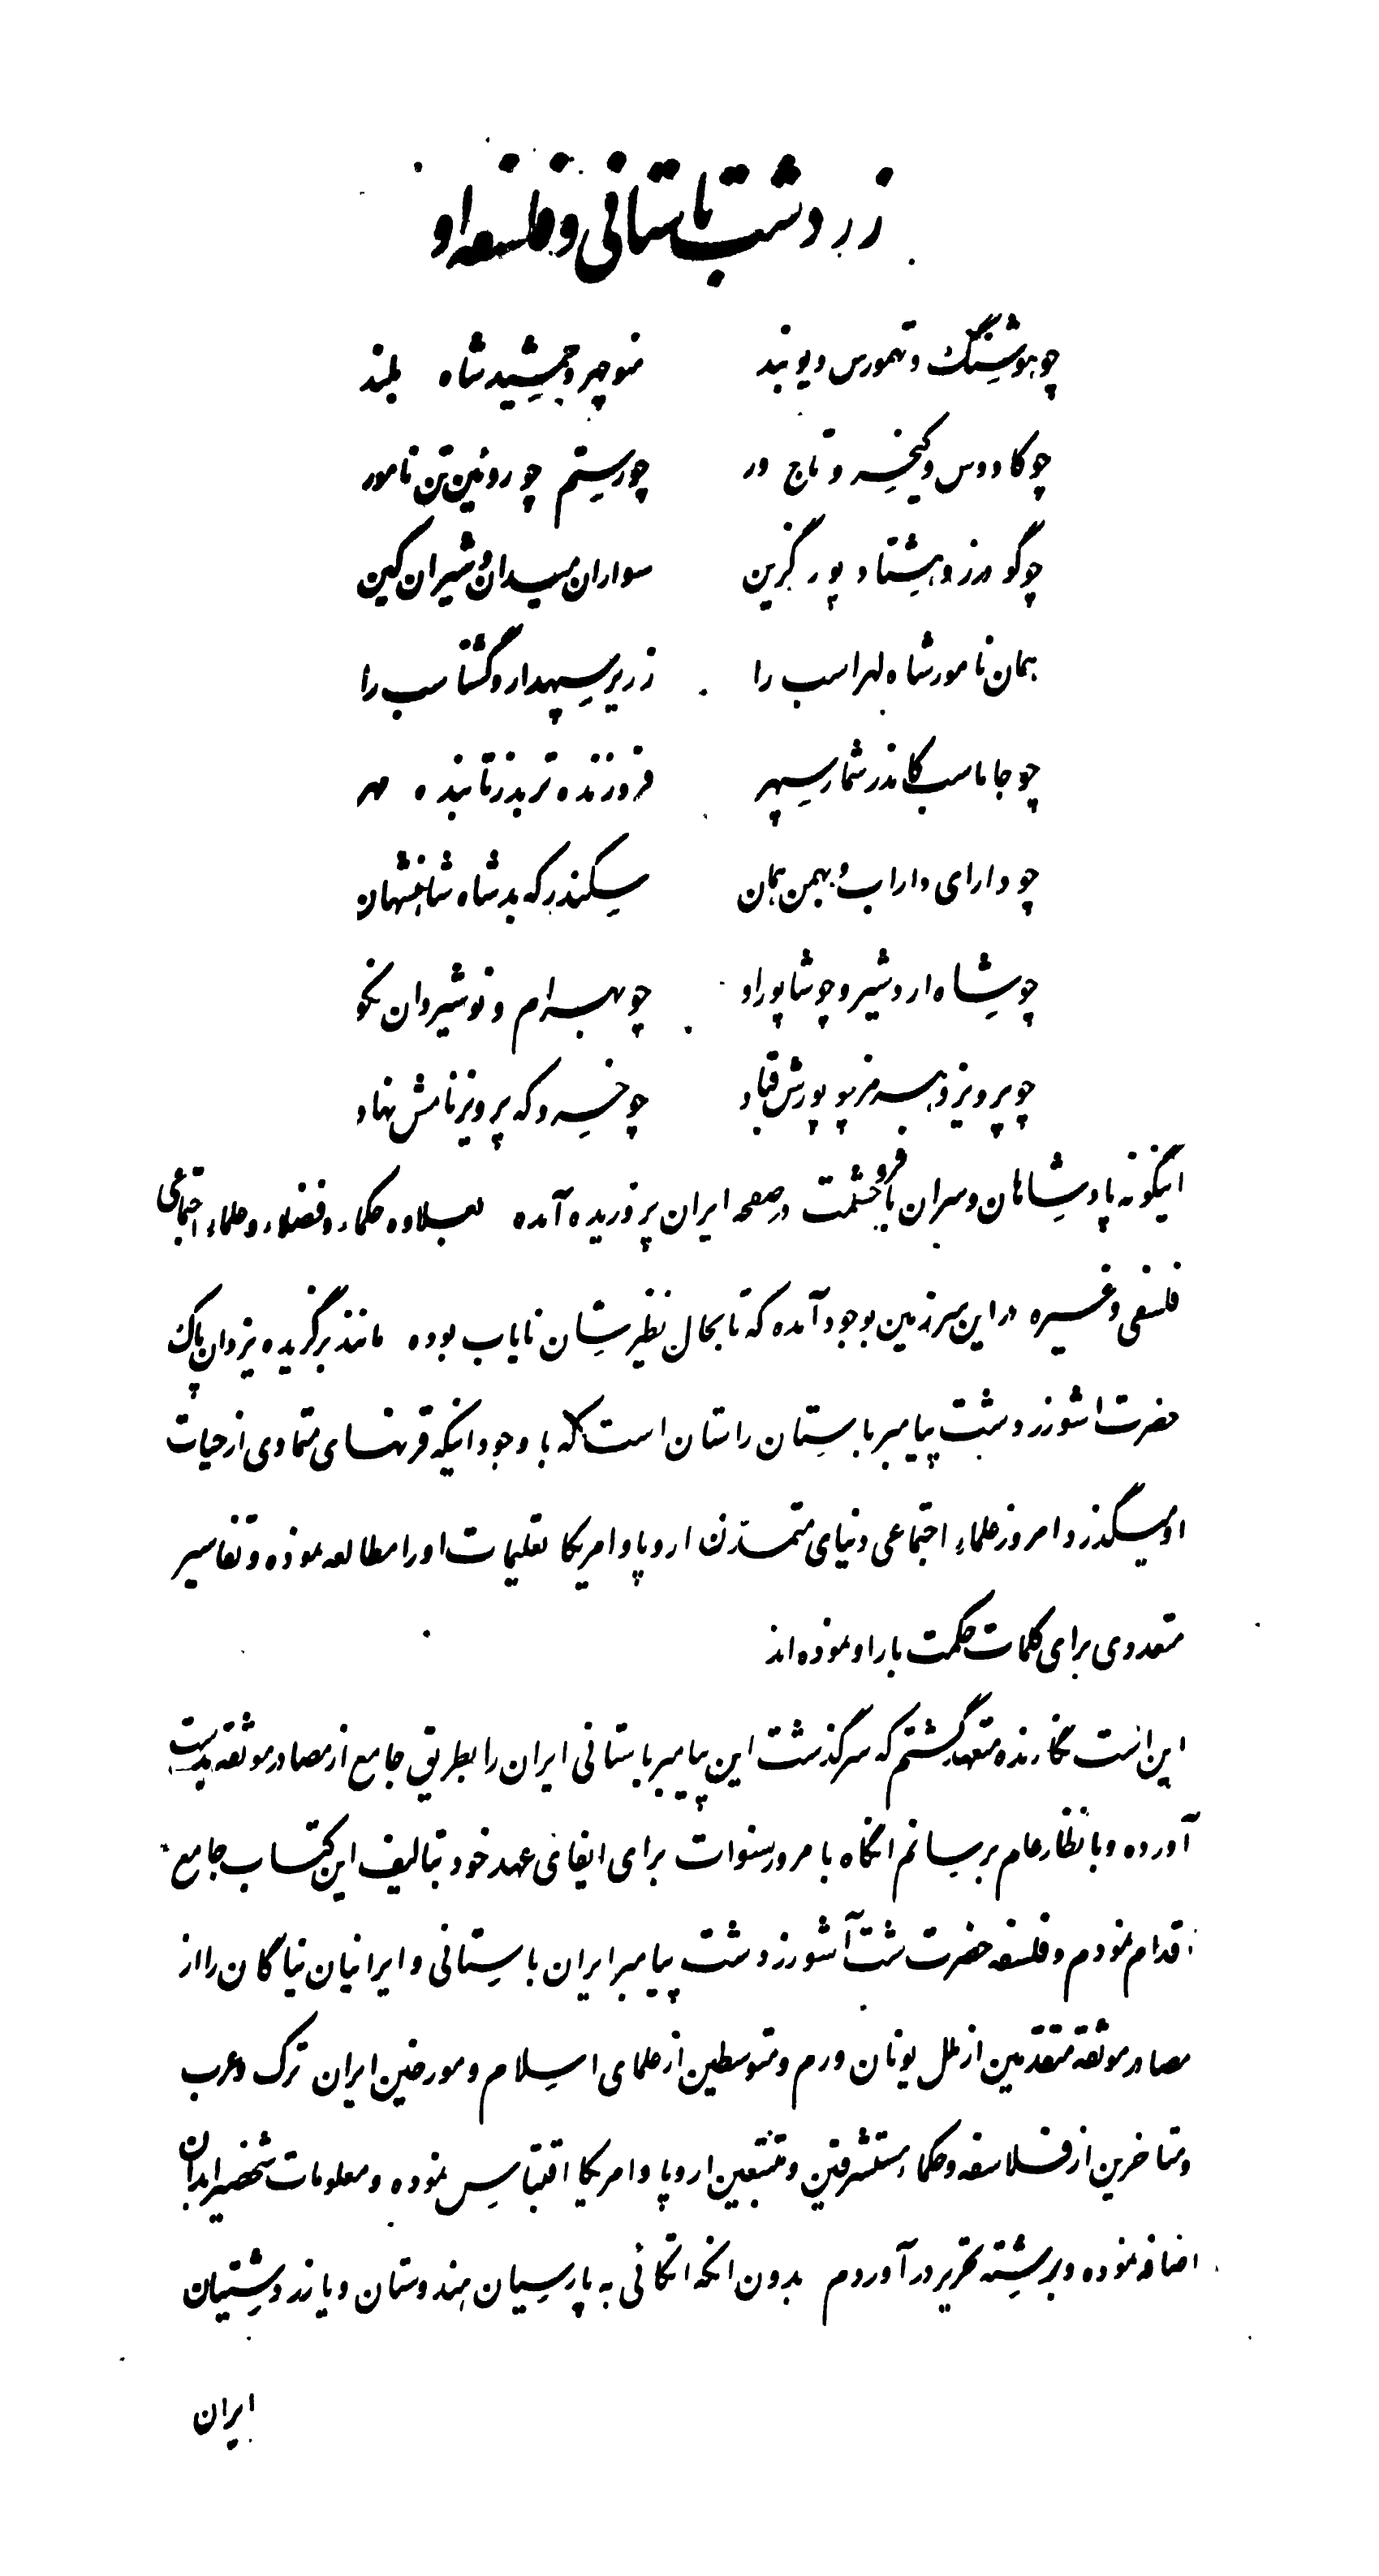 زردشت باستانی و فلسفه او
چو هوشنگ و تهمورس دیوبند منوچهر و جمشید شاه بلند
چو کاووس و کیخسرو تاج ور چو رستم چو روئین تن نامور
چو گودرز و هشتاد پور گزین سواران میدان و شیران کین
همان نامور شاه لهراسب را زریر سپهدار و گشتاسب را
چو جاماسب کاندر شمار سپهر فروزنده تر بد ز تابنده مهر
چو دارای داراب و بهمن همان سکندر که بد شاه شاهنشهان
چو شاه اردشیر و چو شاپور او چو بهرام و نوشیروان نکو
چو پرویز و هرمز چو پورش قباد چو خسرو که پرویز نامش نهاد
اینگونه پادشاهان و سران با فر و حشمت در صفحه ایران پروریده آمده بعلاوه حکماء و فضلاء و علماء اجتماعی
فلسفی و غیره در این سرزمین بوجود آمده که تا بحال نظیرشان نایاب بوده مانند برگزیده یزدان پاک
حضرت اشوزردشت پیامبر باستان راستان است که با وجود اینکه قرنهای متمادی از حیات
او میگذرد امروز علماء اجتماعی دنیای متمدّن اروپا و امریکا تعلیمات او را مطالعه نموده و تفاسیر
متعددی برای کلمات حکمت بار او نموده اند
این است نگارنده متعهد گشتم که سرگذشت این پیامبر باستانی ایران را بطریق جامع از مصادر موثقه بدست
آورده و بانظار عام برسانم انگاه با مرور سنوات برای ایفای عهد خود بتالیف این کتاب جامع
اقدام نمودم و فلسفه حضرت شت آشوزردشت پیامبر ایران باستانی و ایرانیان نیاگان را از
مصادر موثقه متقدمین از ملل یونان و رم و متوسطین از علمای اسلام و مورخین ایران ترک و عرب
و متاخرین از فلاسفه و حکماء مستشرقین و متتبعین اروپا و امریکا اقتباس نموده و معلومات شخصیرا بدان
اضافه نموده و برشته تحریر در آوردم بدون انکه اتکائی به پارسیان هندوستان و یا زردشتیان
ایران